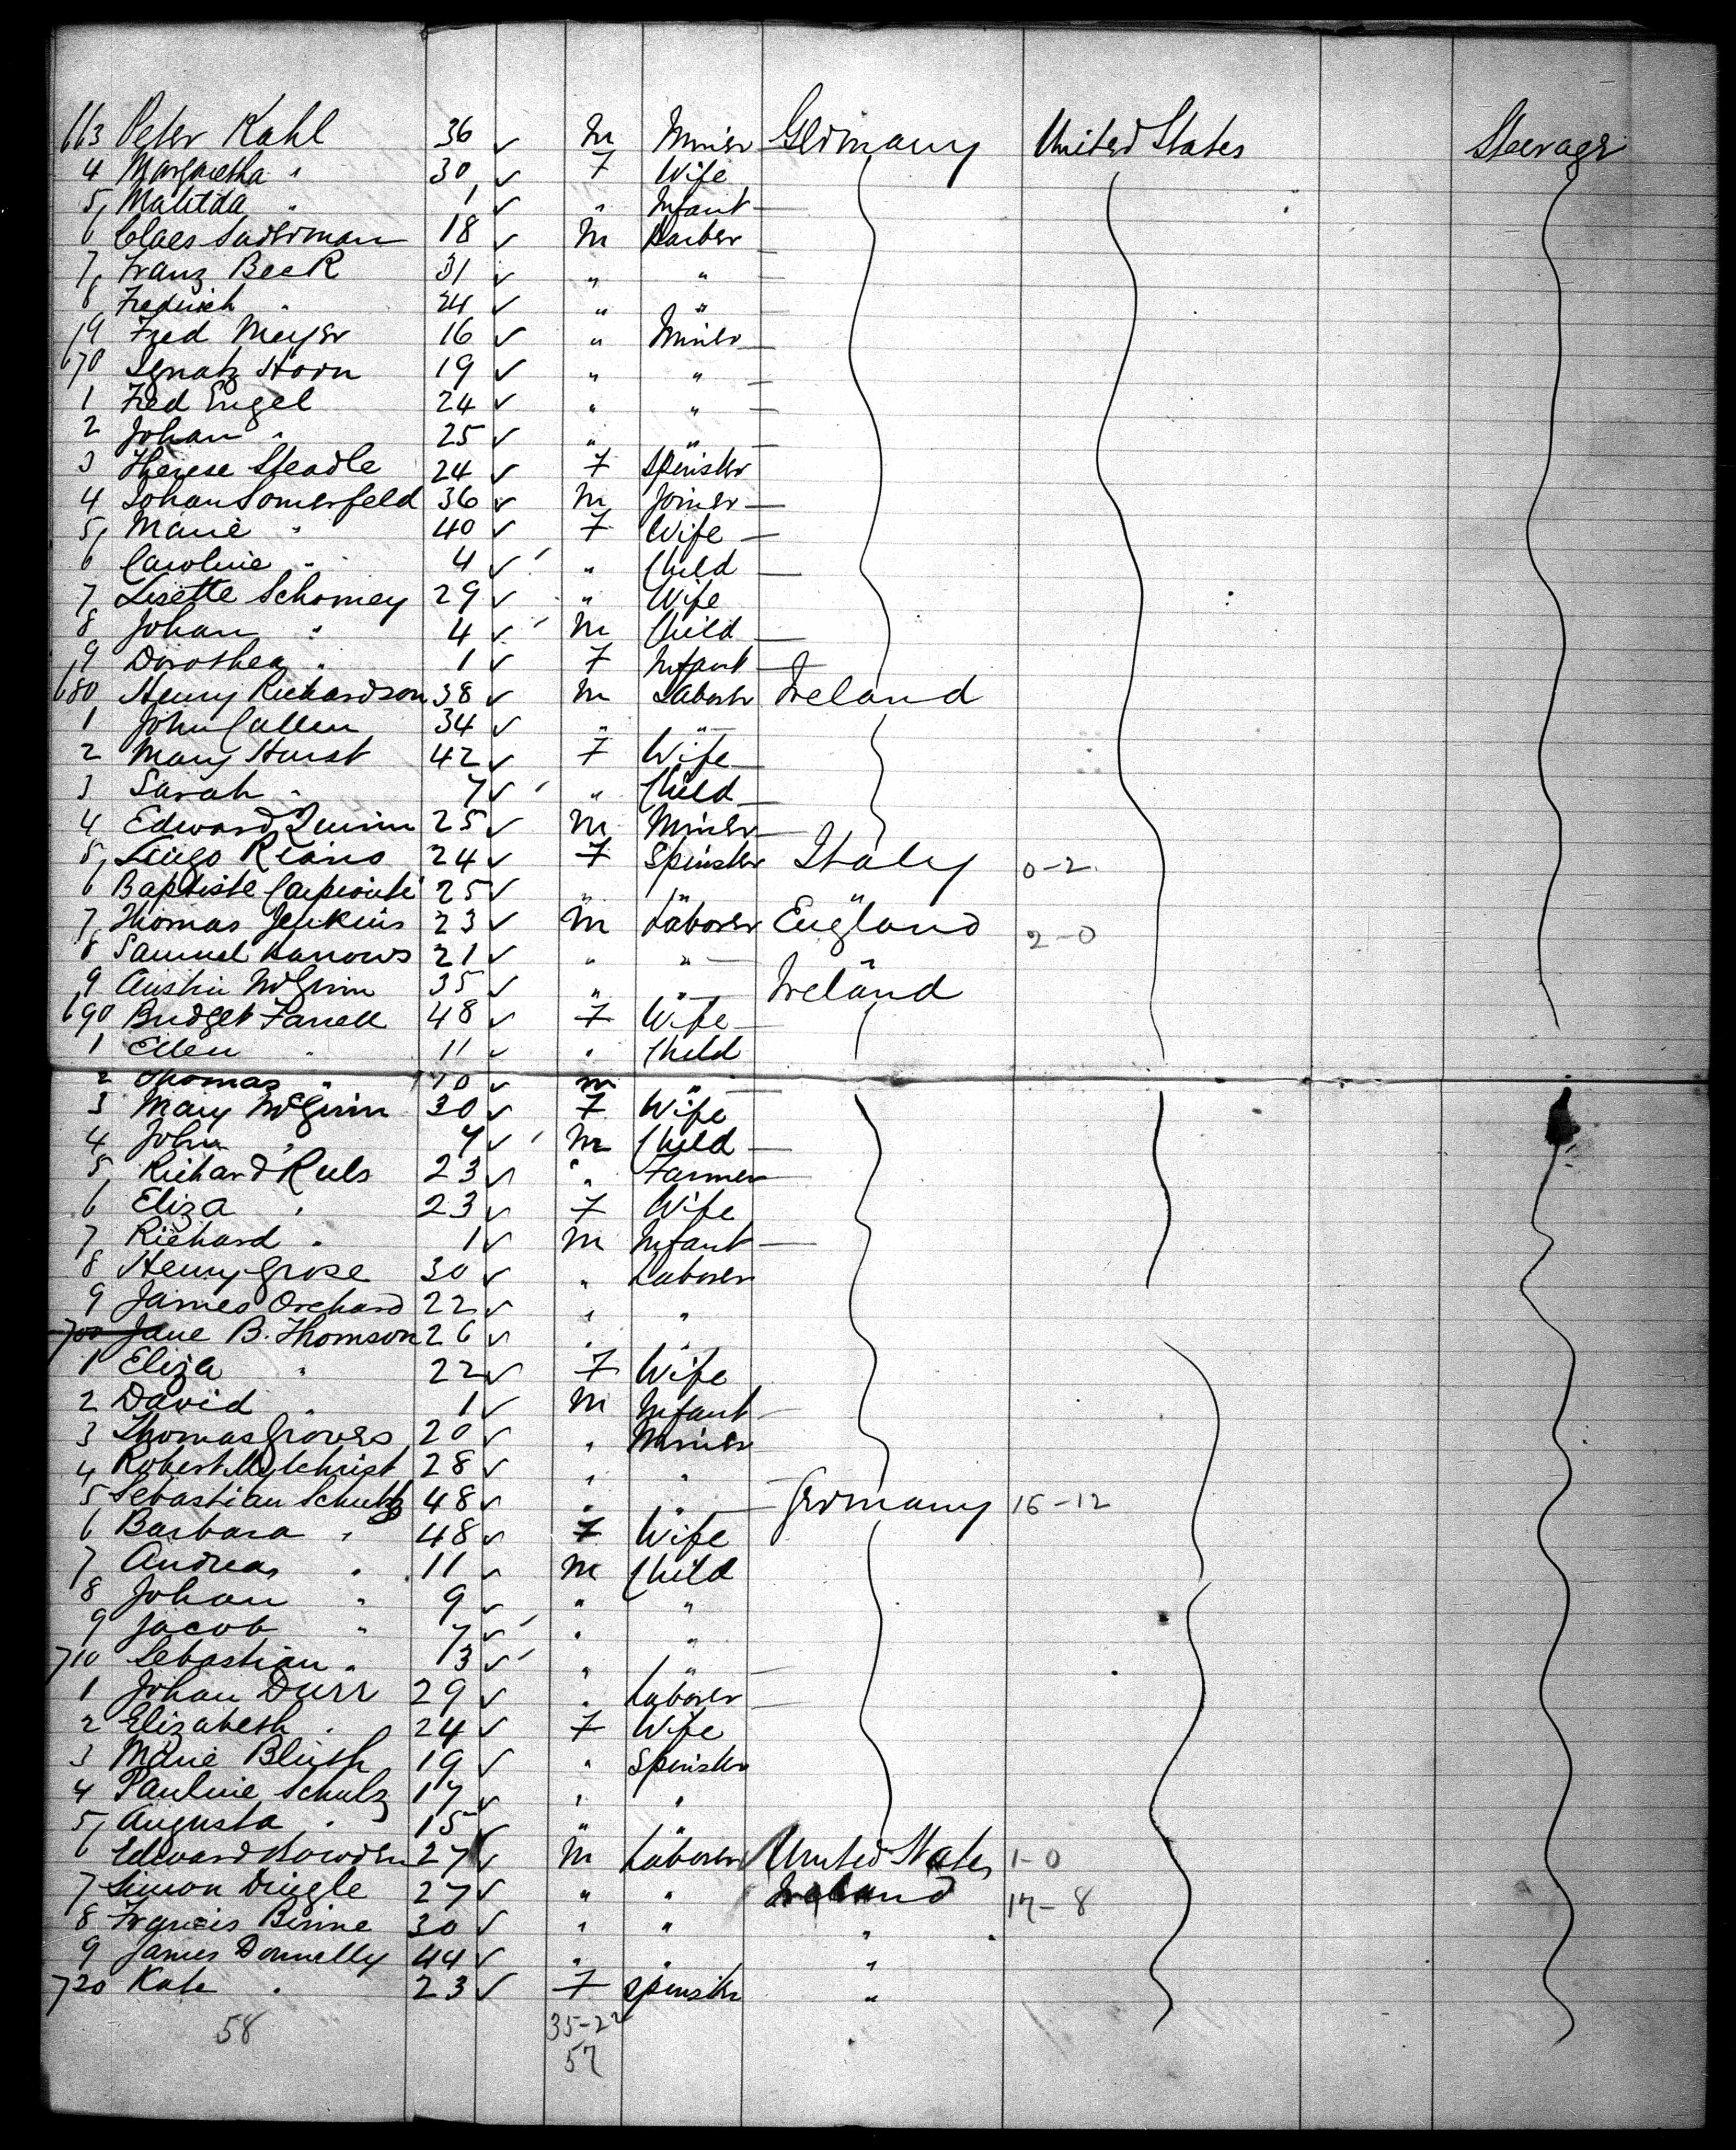 663 Peter Kahl 36 ✓ M Miner Germany United States Steerage
4 Margaretha " 30 ✓ F Wife
5 Matilda " 1 ✓ " Infant
6 Claes Suderman 18 ✓ M Barber
7 Franz Beck 31 ✓ " "
8 Fredrich " 24 ✓ " "
9 Fred Meyer 16 ✓ " Miner
670 Ignatz Horn 19 ✓ " "
1 Fred Engel 24 ✓ " "
2 Johan " 25 ✓ " "
3 Therese Steadle 24 ✓ F Spinster
4 Johan Somerfeld 36 ✓ M Joiner
5 Marie " 40 ✓ F Wife
6 Caroline " 4 ✓ " Child
7 Lisette Schomey 29 ✓ " Wife
8 Johan " 4 ✓ M Child
9 Dorothea " 1 ✓ F Infant
680 Henry Richardson 38 ✓ M Laborer Ireland
1 John Cullen 34 ✓ " "
2 Mary Hurst 42 ✓ F Wife
3 Sarah " 7 ✓ " Child
4 Edward Quinn 25 ✓ M Miner
5 24 ✓ F Spinster Italy 0-2
6 Baptiste 25 ✓ " "
7 Thomas Jenkins 23 ✓ M Laborer England 2-0
8 Samuel Barrows 21 ✓ " " "
9 Austin McGinn 35 ✓ " " Ireland
690 Bridget Farrell 48 ✓ F Wife
1 Ellen " 11 ✓ " Child
2 Thomas " 10 ✓ M "
3 Mary McGinn 30 ✓ F Wife
4 John " 7 ✓ M Child
5 Richard Ruls 23 ✓ " Farmer
6 Eliza " 23 ✓ F Wife
7 Richard " 1 ✓ M Infant
8 Henry Grose 30 ✓ " Laborer
9 James Orchard 22 ✓ " "
700 Jane B. Thomson 26 ✓ " "
1 Eliza " 22 ✓ F Wife
2 David " 1 ✓ M Infant
3 Thomas Groves 20 ✓ " Miner
4 Robert Mylchrist 28 ✓ " "
5 Sebastian Schultz 48 ✓ " " Germany 16-12
6 Barbara " 48 ✓ F Wife
7 Andreas " 11 ✓ M Child
8 Johan " 9 ✓ " "
9 Jacob " 7 ✓ " "
710 Sebastian " 3 ✓ " "
1 Johan Durr 29 ✓ " Laborer
2 Elizabeth " 24 ✓ F Wife
3 Marie Blüth 19 ✓ " Spinster
4 Pauline Schulz 17 ✓ " "
5 Augusta " 15 ✓ " "
6 Edward Bowden 27 ✓ M Laborer United States 1-0
7 Simon Dingle 27 ✓ " " Ireland 17-8
8 Francis Birine 30 ✓ " " "
9 James Donnelly 44 ✓ " " "
720 Kate " 23 ✓ F Spinster "
58 35-22
57